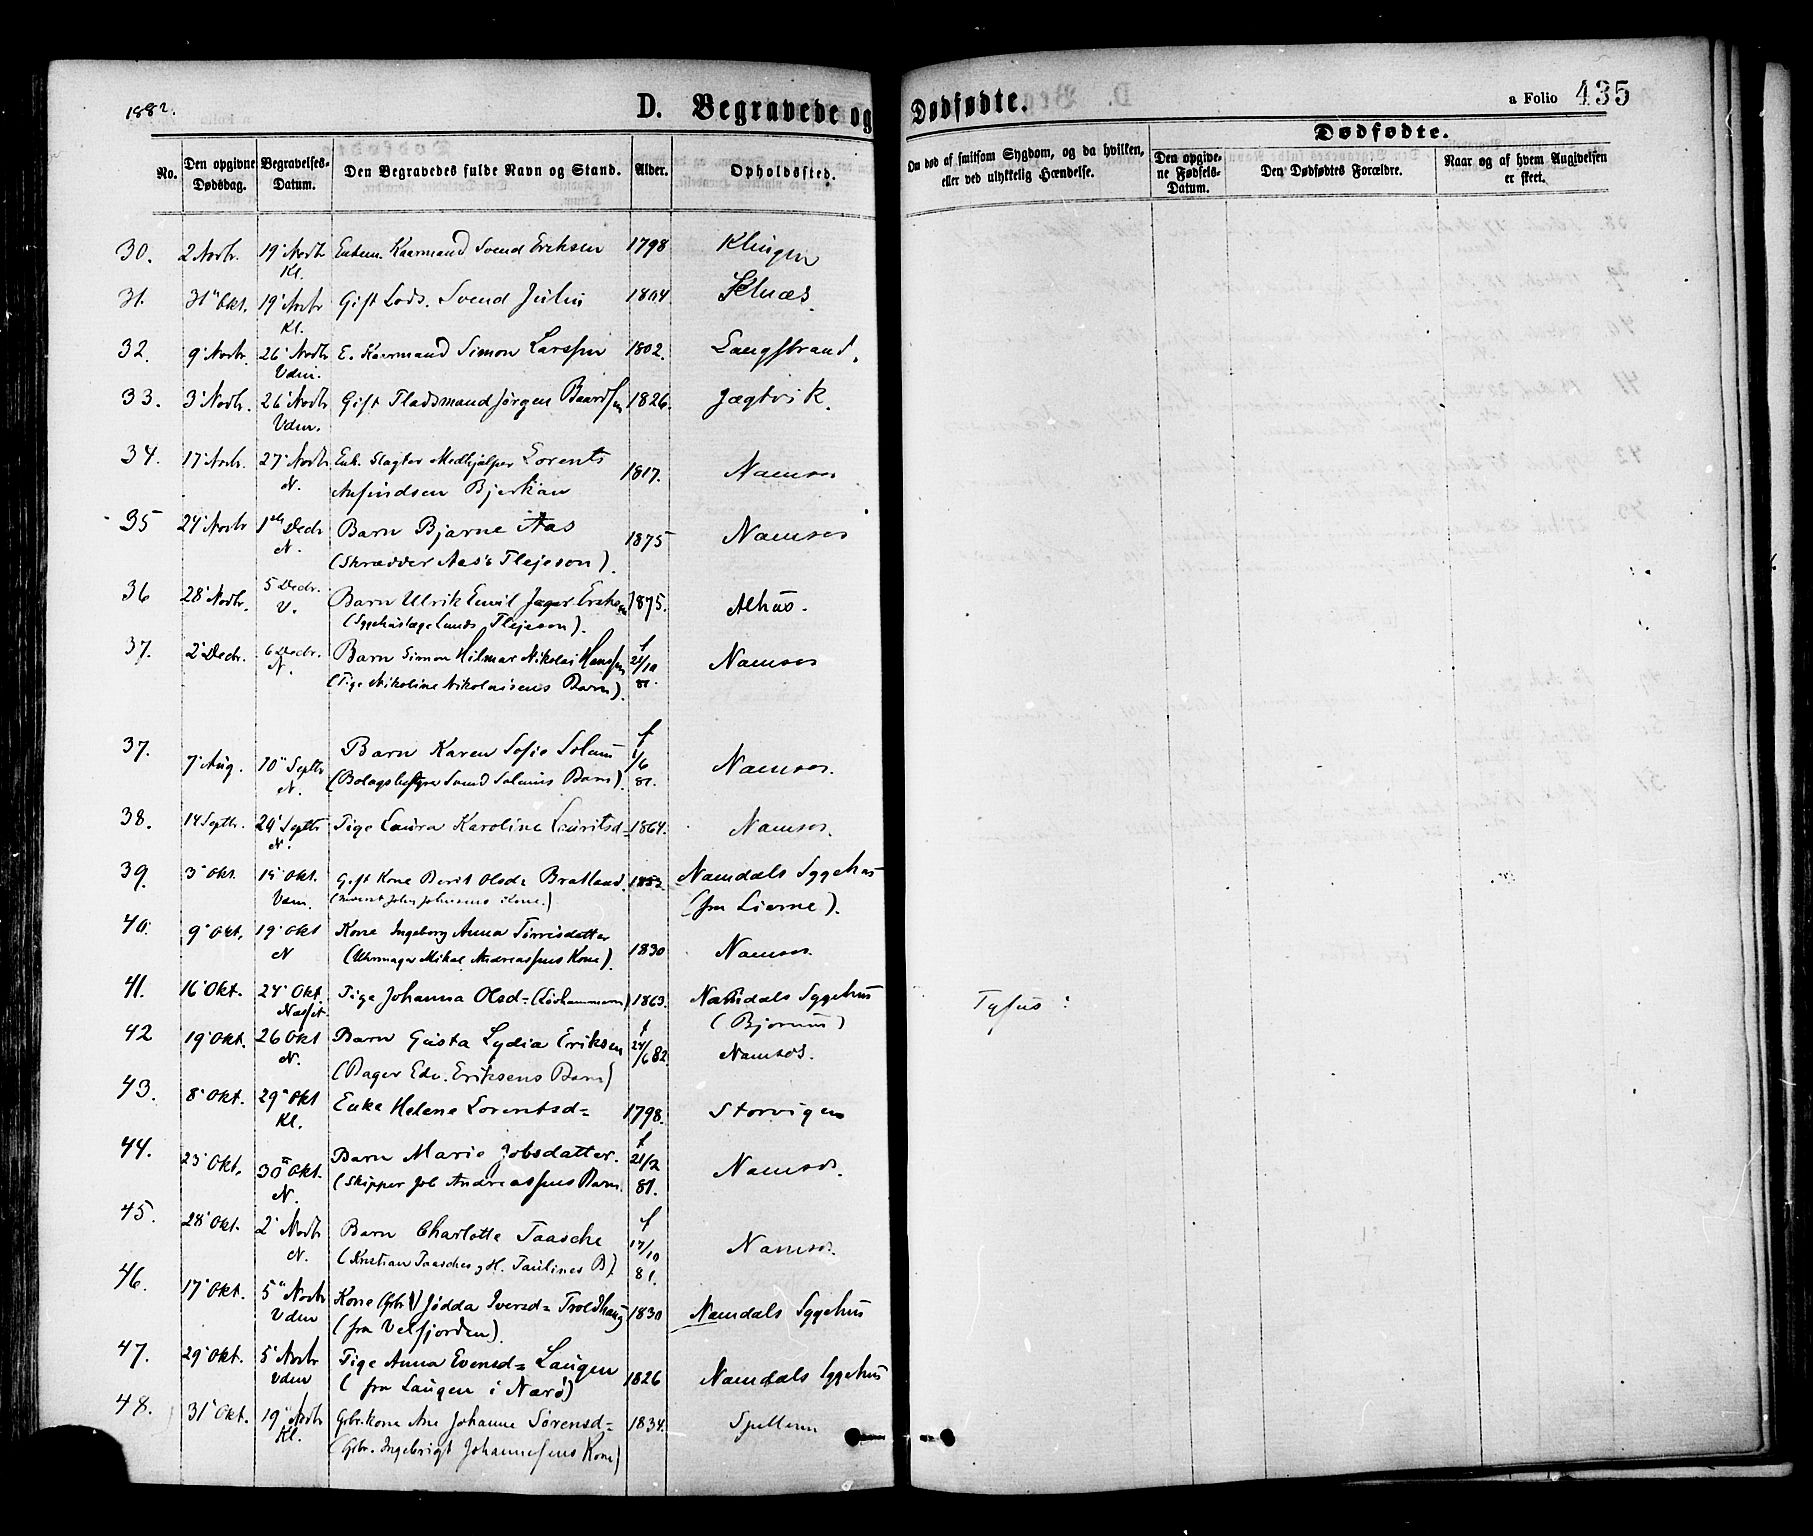 1882.
D. Begravede og Dødfødte.
a Folio 435
Dødfødte.
No. Den opgivne Dødsdag. Begravelses-Datum. Den Begravedes fulde Navn og Stand. Alder. Opholdssted. Om død af smitsom Sygdom, og da hvilken, eller ved ulykkelig Hændelse. Den opgivne Fødsels-Datum. Den Dødfødtes Forældre. Naar og af hvem Angivelsen er skeet.
30. 2 Novbr. 19' Novbr Enkem. Kaarmand Svend Eriksen 1798 Klingen
Kl.
31. 31' Okt. 19' Novbr Gift Lods. Svend Julin 1804
Kl.
32. 9' Novbr. 26' Novbr E. Kaarmand Simon Larssen 1802. Langstrand.
Vdm.
33. 3' Novbr. 26' Novbr Gift Pladsmand Jørgen Baardsen 1826. Jægtvik.
Vdm.
34. 17' Novbr. 27' Novbr Enk. Slagter Medhjælper Lorents 1817. Namsos
N. Anfindsen Bjerkan
35 24' Novbr 1ste Decbr Barn Bjarne Aas 1875 Namsos
N. (Skrædder Aas's Plejesøn).
36 28' Novbr. 5 Decbr. Barn Ulrik Emil Jæger Eriksen 1875. Alhus.
V. (Sygehuslæge Lunds Plejesøn).
37. 2' Decbr. 6 Decbr. Barn Simon Hilmar Nikolai Hanssen f 21/10 81. Namsos
N. (Pige Nikoline Nikolaisens Barn).
37. 7' Aug. 10' Septbr Barn Karen Sofie Solum f 1/6 81. Namsos.
N. (Bolagsbestyrer Svend Solums Barn).
38. 14 Septbr. 20' Septbr Pige Laura Karoline Lauritsd= 1864. Namsos.
N.
39. 3' Okt. 15' Okt. Gift Kone Berit Olsd= Bratland. 1853. Namdals Sygehus
Vdm. John Johnsens Kone.) (fra Lierne).
40. 9' Okt. 19' Okt Kone Ingeborg Anna Tørrisdatter 1830 Namsos.
N (Uhrmager Mikal Andreassens Kone).
41. 16' Okt. 24' Okt. Pige Johanna Olsd= 1863. Namdals Sygehus Tyfus:
(Bjørum)
42 19' Okt. 26 Okt Barn Gusta Lydia Eriksen f 24/6 82. Namsos.
N. (Bager Edv. Eriksens Barn)
43. 8' Okt. 29' Okt Enke Helene Lorentsd= 1798. Storvigen
Kl.
44. 23' Okt. 30' Okt. Barn Marie Jobsdatter. f 21/2 81. Namsos.
N. (Skipper Job Andreassens Barn.
45. 28' Okt. 2' Novbr Barn Charlotte Taasche f 17/10 81. Namsos.
N. (Kristian Taasches og H. Paulines B).
46. 17' Okt. 5' Novbr Kone (Gbr.) Jødda Iversd= Troldhaug 1830 Namdals Sygehus
Vdm (fra Velfjorden).
47. 29' Okt. 5' Novbr Pige Anna Evensd= Laugen 1826 Namdals Sygehus
Vdm (fra Laugen i Nærø)
48. 31' Okt. 19' Novbr Gbr.kone Ane Johanne Sørensd= 1834. Spillum
Kl. (Gbr. Ingebrigt Johannesens Kone)